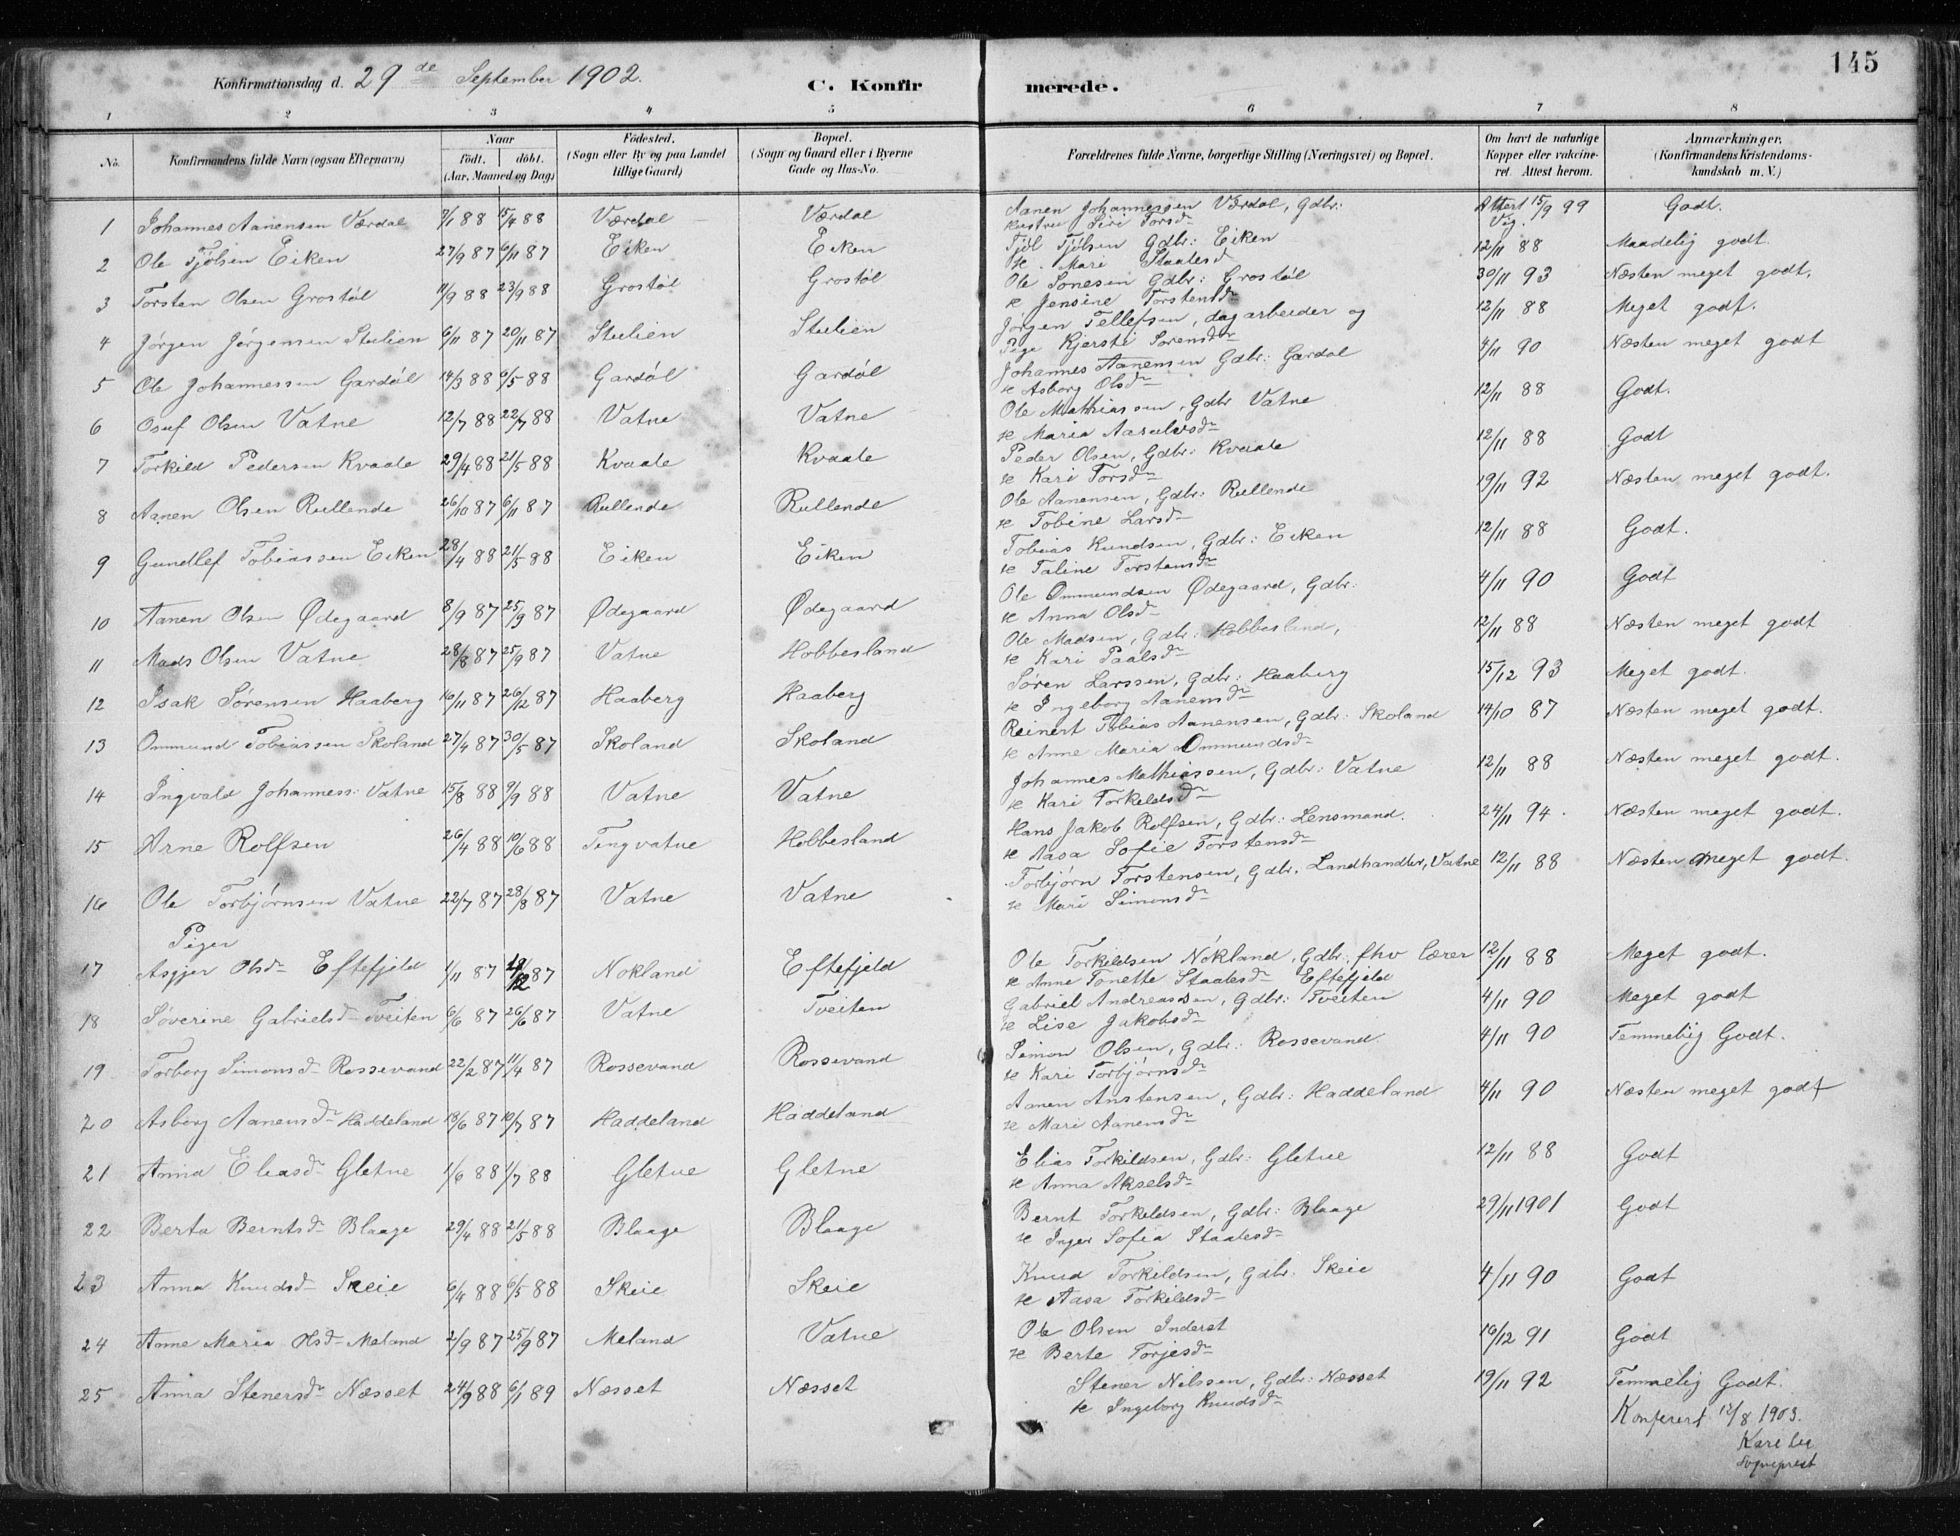 145
Konfirmationsdag d. 29 de September 1902. C. Konfirmerede.
1 2 3 4 5 6 7 8
No. Konfirmandens fulde Navn (ogsaa Efternavn) Naar født. døbt. (Aar, Maaned og Dag) Fødested. (Sogn eller By og paa Landet tillige Gaard) Bopæl. (Sogn og Gaard eller i Byerne Gade og Hus-No. Forældrenes fulde Navne, borgerlige Stilling (Næringsvei) og Bopæl. Om havt de naturlige Kopper eller vakcineret. Attest herom. Anmærkninger. (Konfirmandens Kristendomskundskab m. V.)
1 Johannes Aanensen Værdal 7/1 88 15/4 88 Værdal Værdal Aanen Johannessen Værdal, Gdbr: Attest 15/9 99 Godt.
Hustru Siri Torsdr Vig.
2 Ole Tjølsen Eiken 27/9 87 6/11 87 Eiken Eiken Tjøl Tjølsen Gdbr: Eiken 12/11 88 Maadelig godt.
H. Mari Staalesd
3 Torsten Olsen Grostøl 11/9 88 23/9 88 Grostøl Grostøl Ole Sonesen Gdbr: Grostøl 30/11 93 Næsten meget godt.
H Jensine Torstensdr
4 Jørgen Jørgensen Stulien 6/11 87 20/11 87 Stulien Stulien Jørgen Tellefsen, dagarbeider og 12/11 88 Meget godt.
Pige Kjersti Sørensdr
5 Ole Johannessen Gardøl 14/3 88 6/5 88 Gardøl Gardøl Johannes Aanensen Gdbr: Gardøl 4/11 90 Næsten meget godt
H Asborg Olsdr
6 Osuf Olsen Vatne 12/7 88 22/7 88 Vatne Vatne Ole Mathiassen, Gdbr Vatne 12/11 88 Godt.
H Maria Aasulvsdr
7 Torkild Pedersen Kvaale 29/4 88 21/5 88 Kvaale Kvaale Peder Olsen, Gdbr: Kvaale 12/11 88 Godt
H Kari Torsdr
8 Aanen Olsen Rullende 26/10 87 6/11 87 Rullende Rullende Ole Aanensen, Gdbr: Rullende 19/11 92 Næsten meget godt.
H Tobine Larsdr
9 Gundlef Tobiassen Eiken 28/4 88 21/5 88 Eiken Eiken Tobias Knudsen, Gdbr: Eiken 12/11 88 Godt.
H Taline Torstensdr
10 Aanen Olsen Ødegaard 8/9 87 25/9 87 Ødegaard Ødegaard Ole Ommundsen Ødegaard, Gdbr: 4/11 90 Godt
H Anna Olsdr
11 Mads Olsen Vatne 28/8 87 25/9 87 Vatne Hobbesland Ole Madsen, Gdbr: Hobbesland, 12/11 88 Næsten meget godt
H Kari Paalsdr
12 Isak Sørensen Haaberg 16/11 87 26/12 87 Haaberg Haaberg Søren Larssen, Gdbr: Haaberg 15/12 93 Meget godt.
H Ingeborg Aanensdr
13 Ommund Tobiassen Skoland 27/4 87 30/5 87 Skoland Skoland Reinert Tobias Aanensen, Gdbr: Skoland 14/10 87 Næsten meget godt.
H Anne Maria Ommundsdr
14 Ingvald Johanness: Vatne 15/8 88 9/9 88 Vatne Vatne Johannes Mathiassen, Gdbr: Vatne 12/11 88 Næsten meget godt.
H Kari Torkildsdr
15 Arne Rolfsen 26/4 88 10/6 88 Tingvatne Hobbesland Hans Jakob Rolfsen, Gdbr: Lensmand. 24/11 94. Næsten meget godt.
H Aasa Sofie Torstensdr
16 Ole Torbjørnsen Vatne 22/7 87 28/8 87 Vatne Vatne Torbjørn Torstensen, Gdbr. Landhandler, Vatne 12/11 88 Næsten meget godt.
H Mari Simonsdr
Piger
17 Asgjer Olsdr Eftefjeld 1/11 87 /12 87 Nøkland Eftefjeld Ole Torkildsen Nøkland, Gdbr, fhv lærer 12/11 88 Meget godt.
H Anne Tonette Staalesdr Eftefjeld
18 Søverine Gabrielsdr Tveiten 6/6 87 26/6 87 Vatne Tveiten Gabriel Andreassen, Gdbr: Tveiten 4/11 90 Meget godt
H Lise Jakobsdr
19 Torborg Simonsdr Rossevand 22/2 87 11/4 87 Rossevand Rossevand Simon Olsen, Gdbr: Rossevand. 4/11 90 Temmelig Godt.
H Kari Torbjørnsdr
20 Asborg Aanensdr Haddeland 18/6 87 10/7 87 Haddeland Haddeland Aanen Anstensen, Gdbr: Haddeland 4/11 90 Næsten meget godt
H Mari Aanensdr
21 Anna Eliasdr Gletne 1/6 88 1/7 88 Gletne Gletne Elias Torkildsen, Gdbr: Gletne 12/11 88 Godt
H Anna Akselsdr
22 Berta Berntsdr Blaage 29/4 88 21/5 88 Blaage Blaage Bernt Torkildsen, Gdbr: Blaage 29/11 1901 Godt
H Inger Sofia Staalesdr
23 Anna Knudsdr Skeie 6/4 88 6/5 88 Skeie Skeie Knud Torkildsen, Gdbr. Skeie 4/11 90 Godt
H Aasa Torkildsdr
24 Anne Maria Olsdr Meland 2/9 87 25/9 87 Meland Vatne Ole Olsen Inderst 16/12 91 Godt
H Berte Torjesdr
25 Anna Stenersdr Næsset 24/9 88 6/1 89 Næsset Næsset Stener Nilssen, Gdbr: Næsset 19/11 92 Temmelig Godt.
H Ingeborg Knudsdr
Konferert 12/8 1903.
Kare
Sogneprest